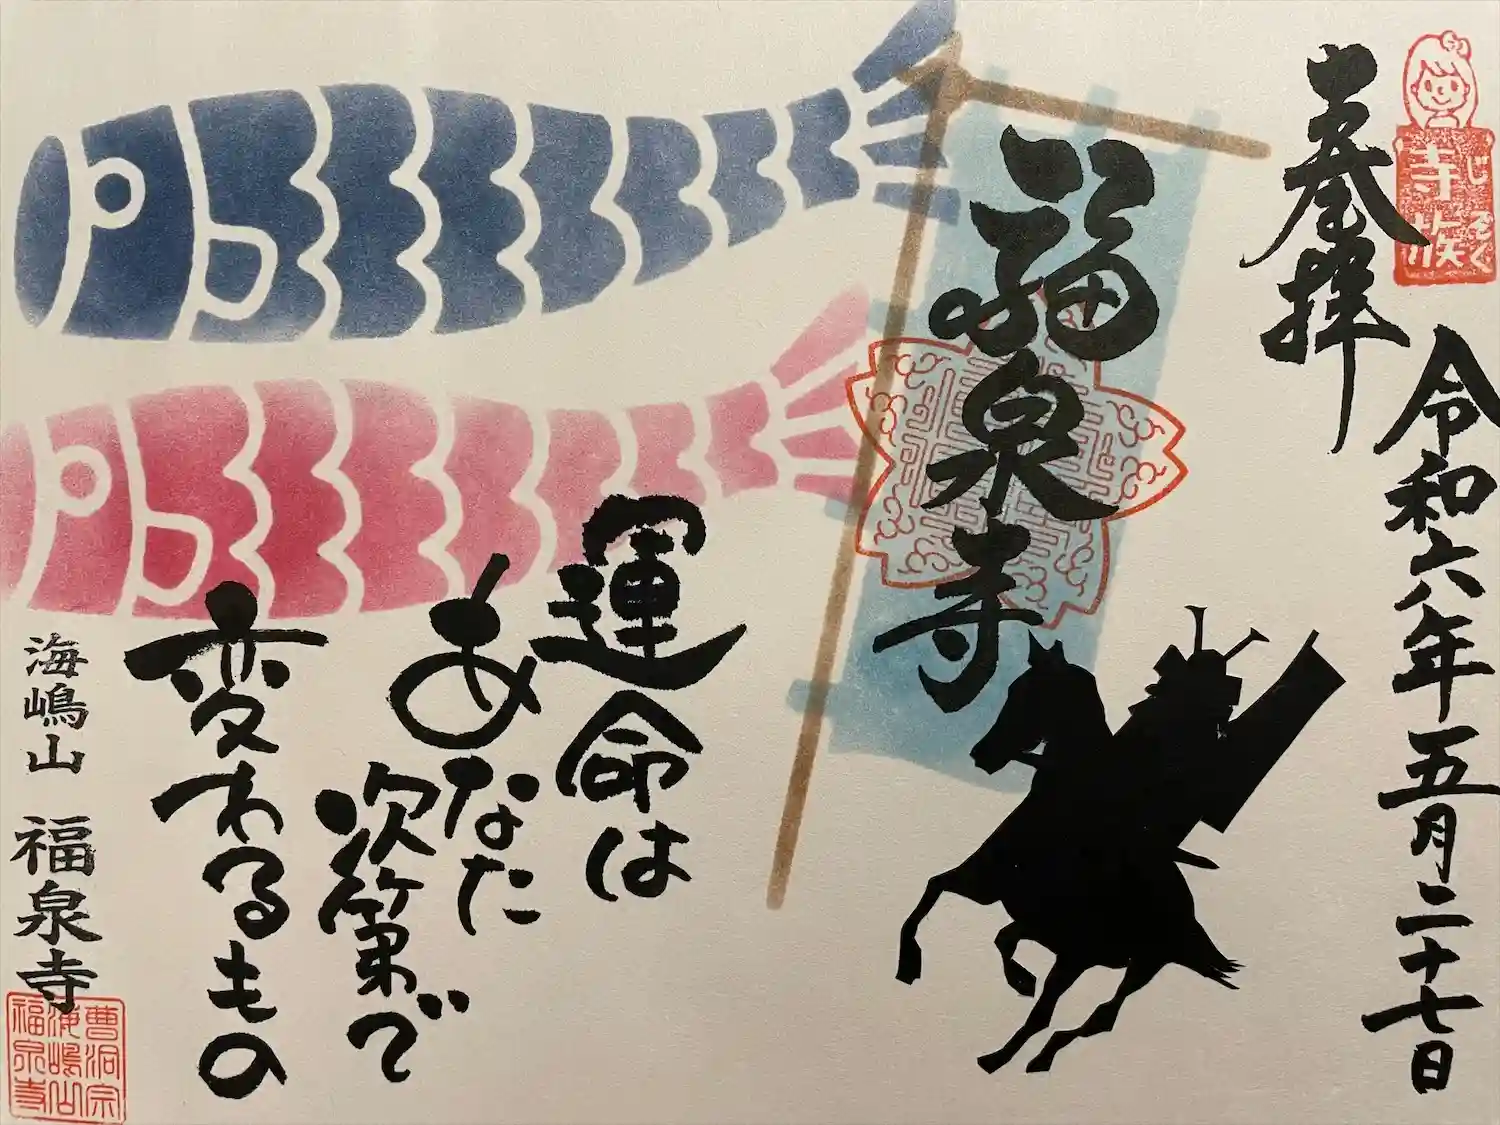 じぞく
寺族
奉拝
令和六年五月二十七日
福泉寺
運命は
あなた
次第で
変わるもの
海嶋山 福泉寺
曹洞宗
海嶋山
福泉寺